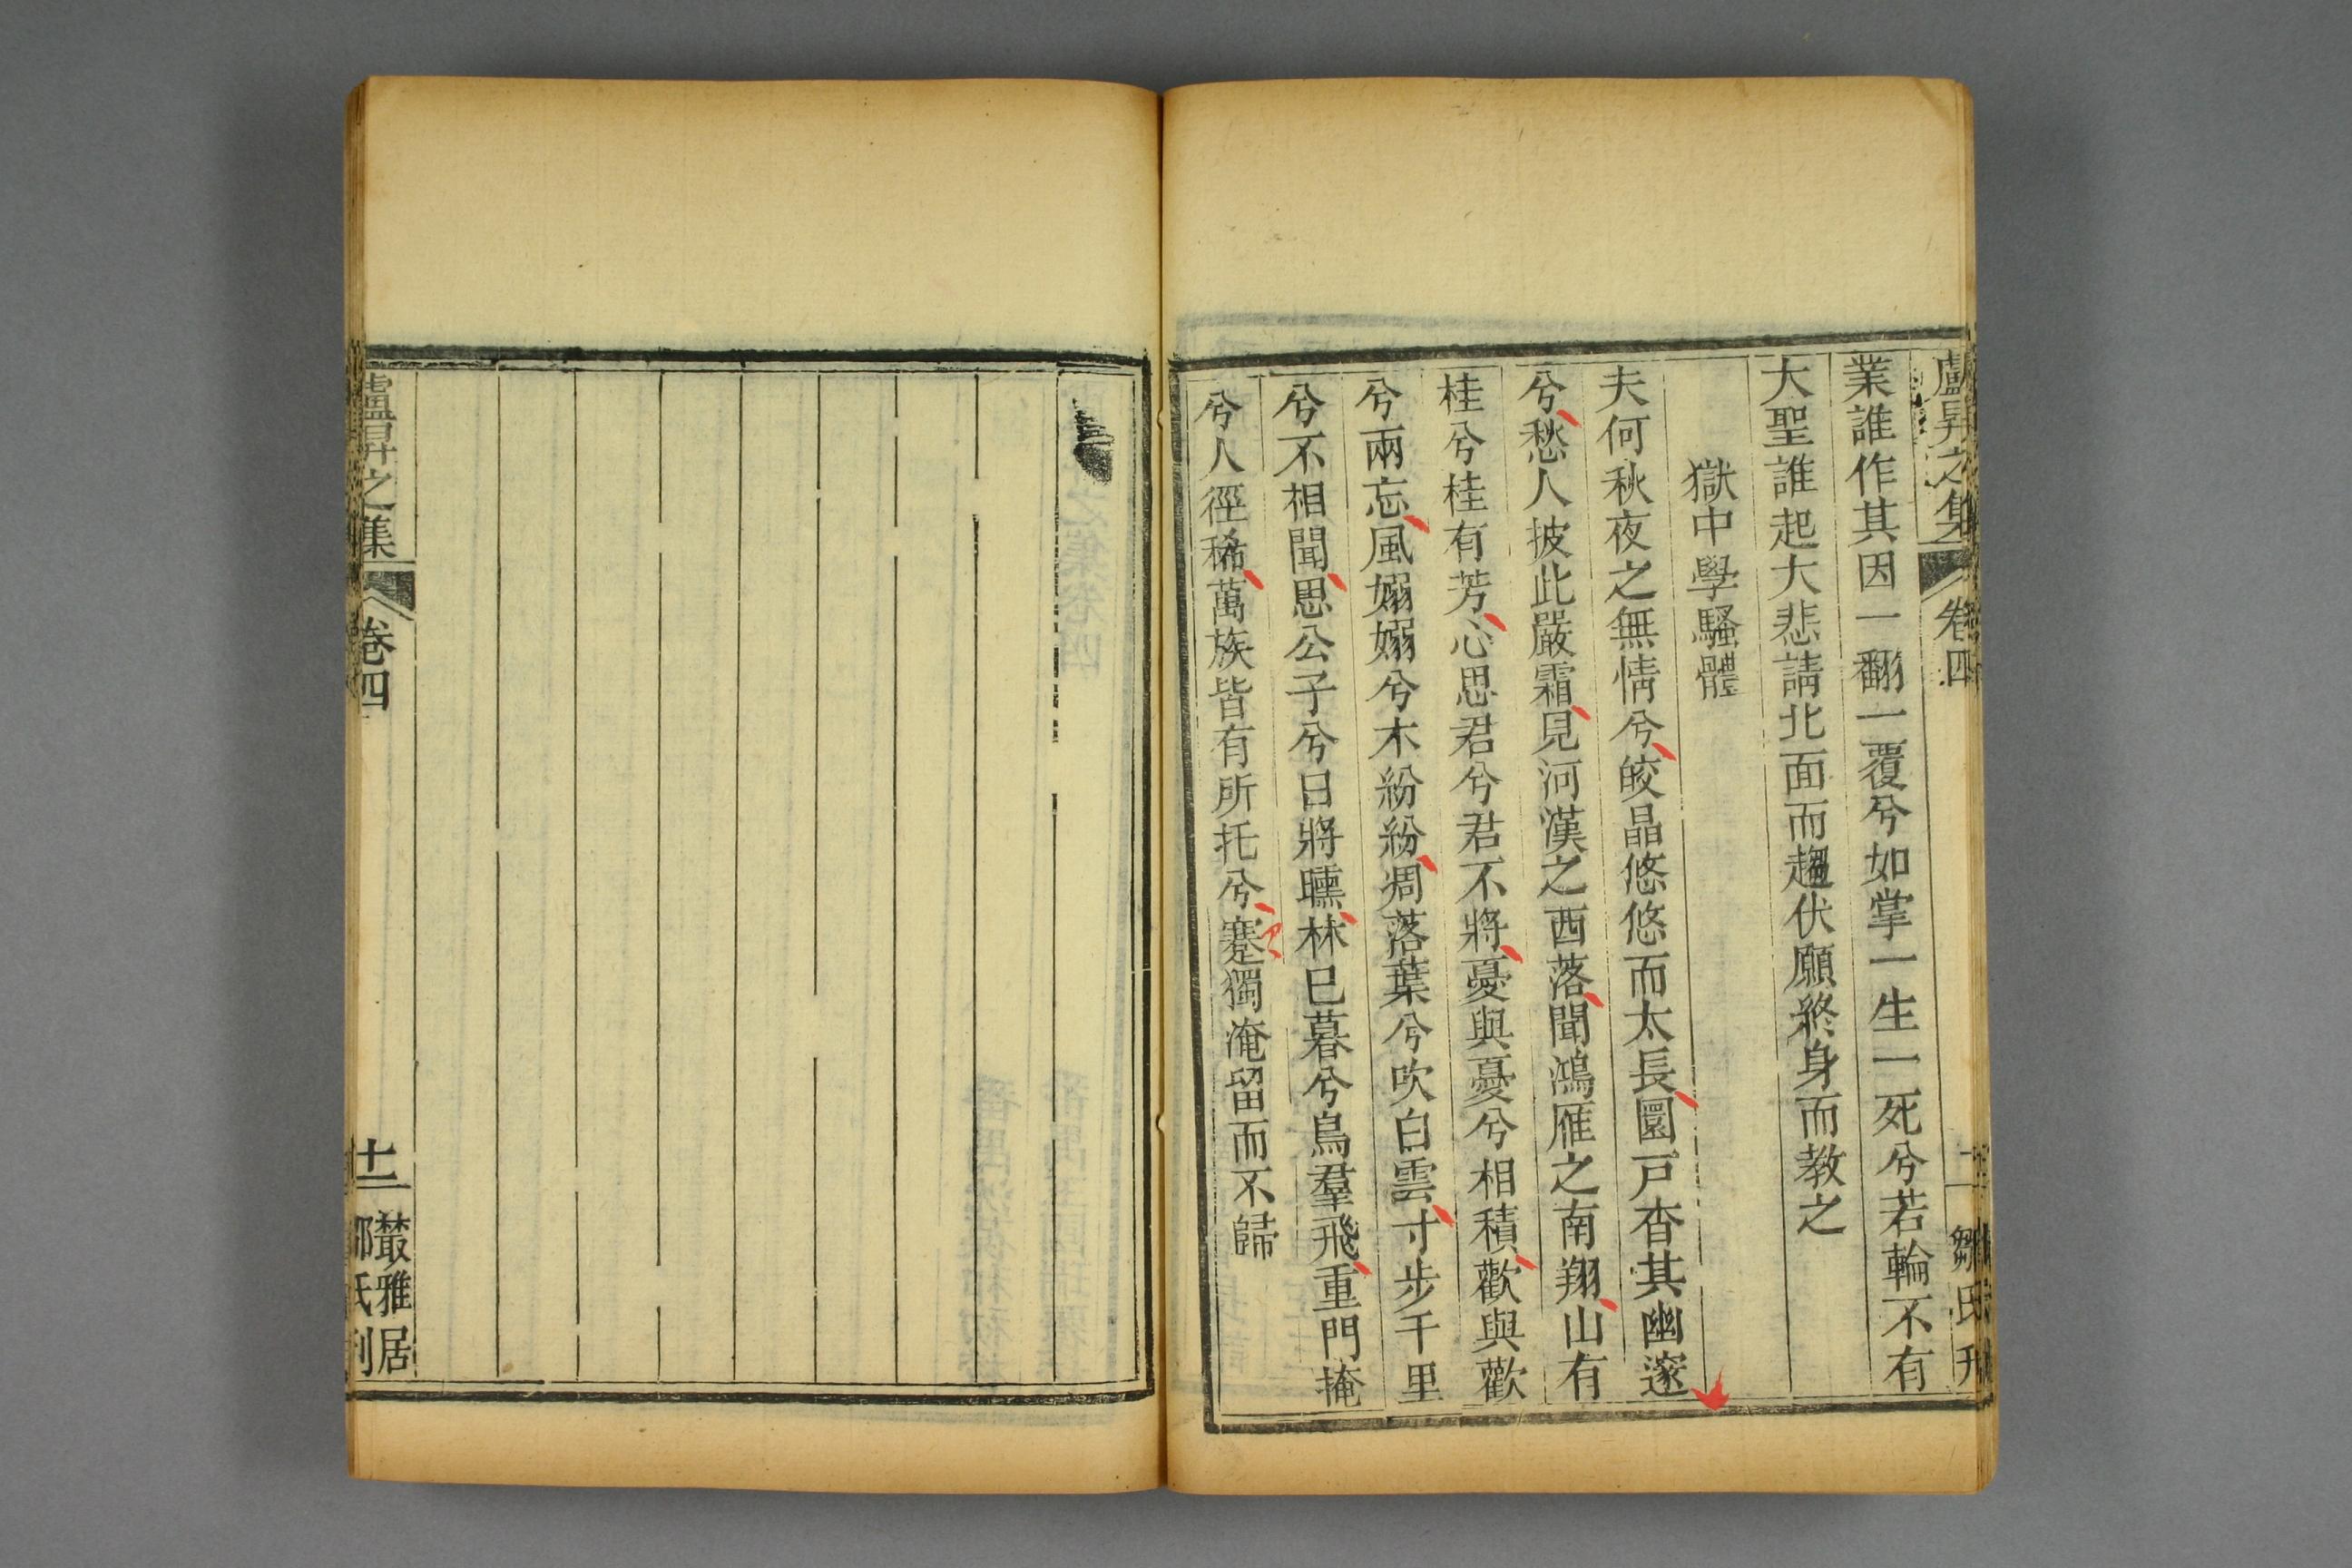 盧昇之集
卷四
業誰作其因一翻一覆兮如掌一生一死兮若輪不有
大聖誰起大悲請北面而趨伏願終身而教之
獄中學騷體
夫何秋夜之無情兮皎晶悠悠而太長圜戸杳其幽邃
兮愁人披此嚴霜見河漢之西落聞鴻雁之南翔山有
桂兮桂有芳心思君兮君不將憂與憂兮相積歡與歡
兮兩忘風嫋嫋兮木紛紛凋落葉兮吹白雲寸步千里
兮不相聞思公子兮日將曛林已暮兮鳥羣飛重門掩
兮人徑稀萬族皆有所托兮蹇獨淹留而不歸
盧昇之集
卷四
十二
叢雅居
鄒氏刋